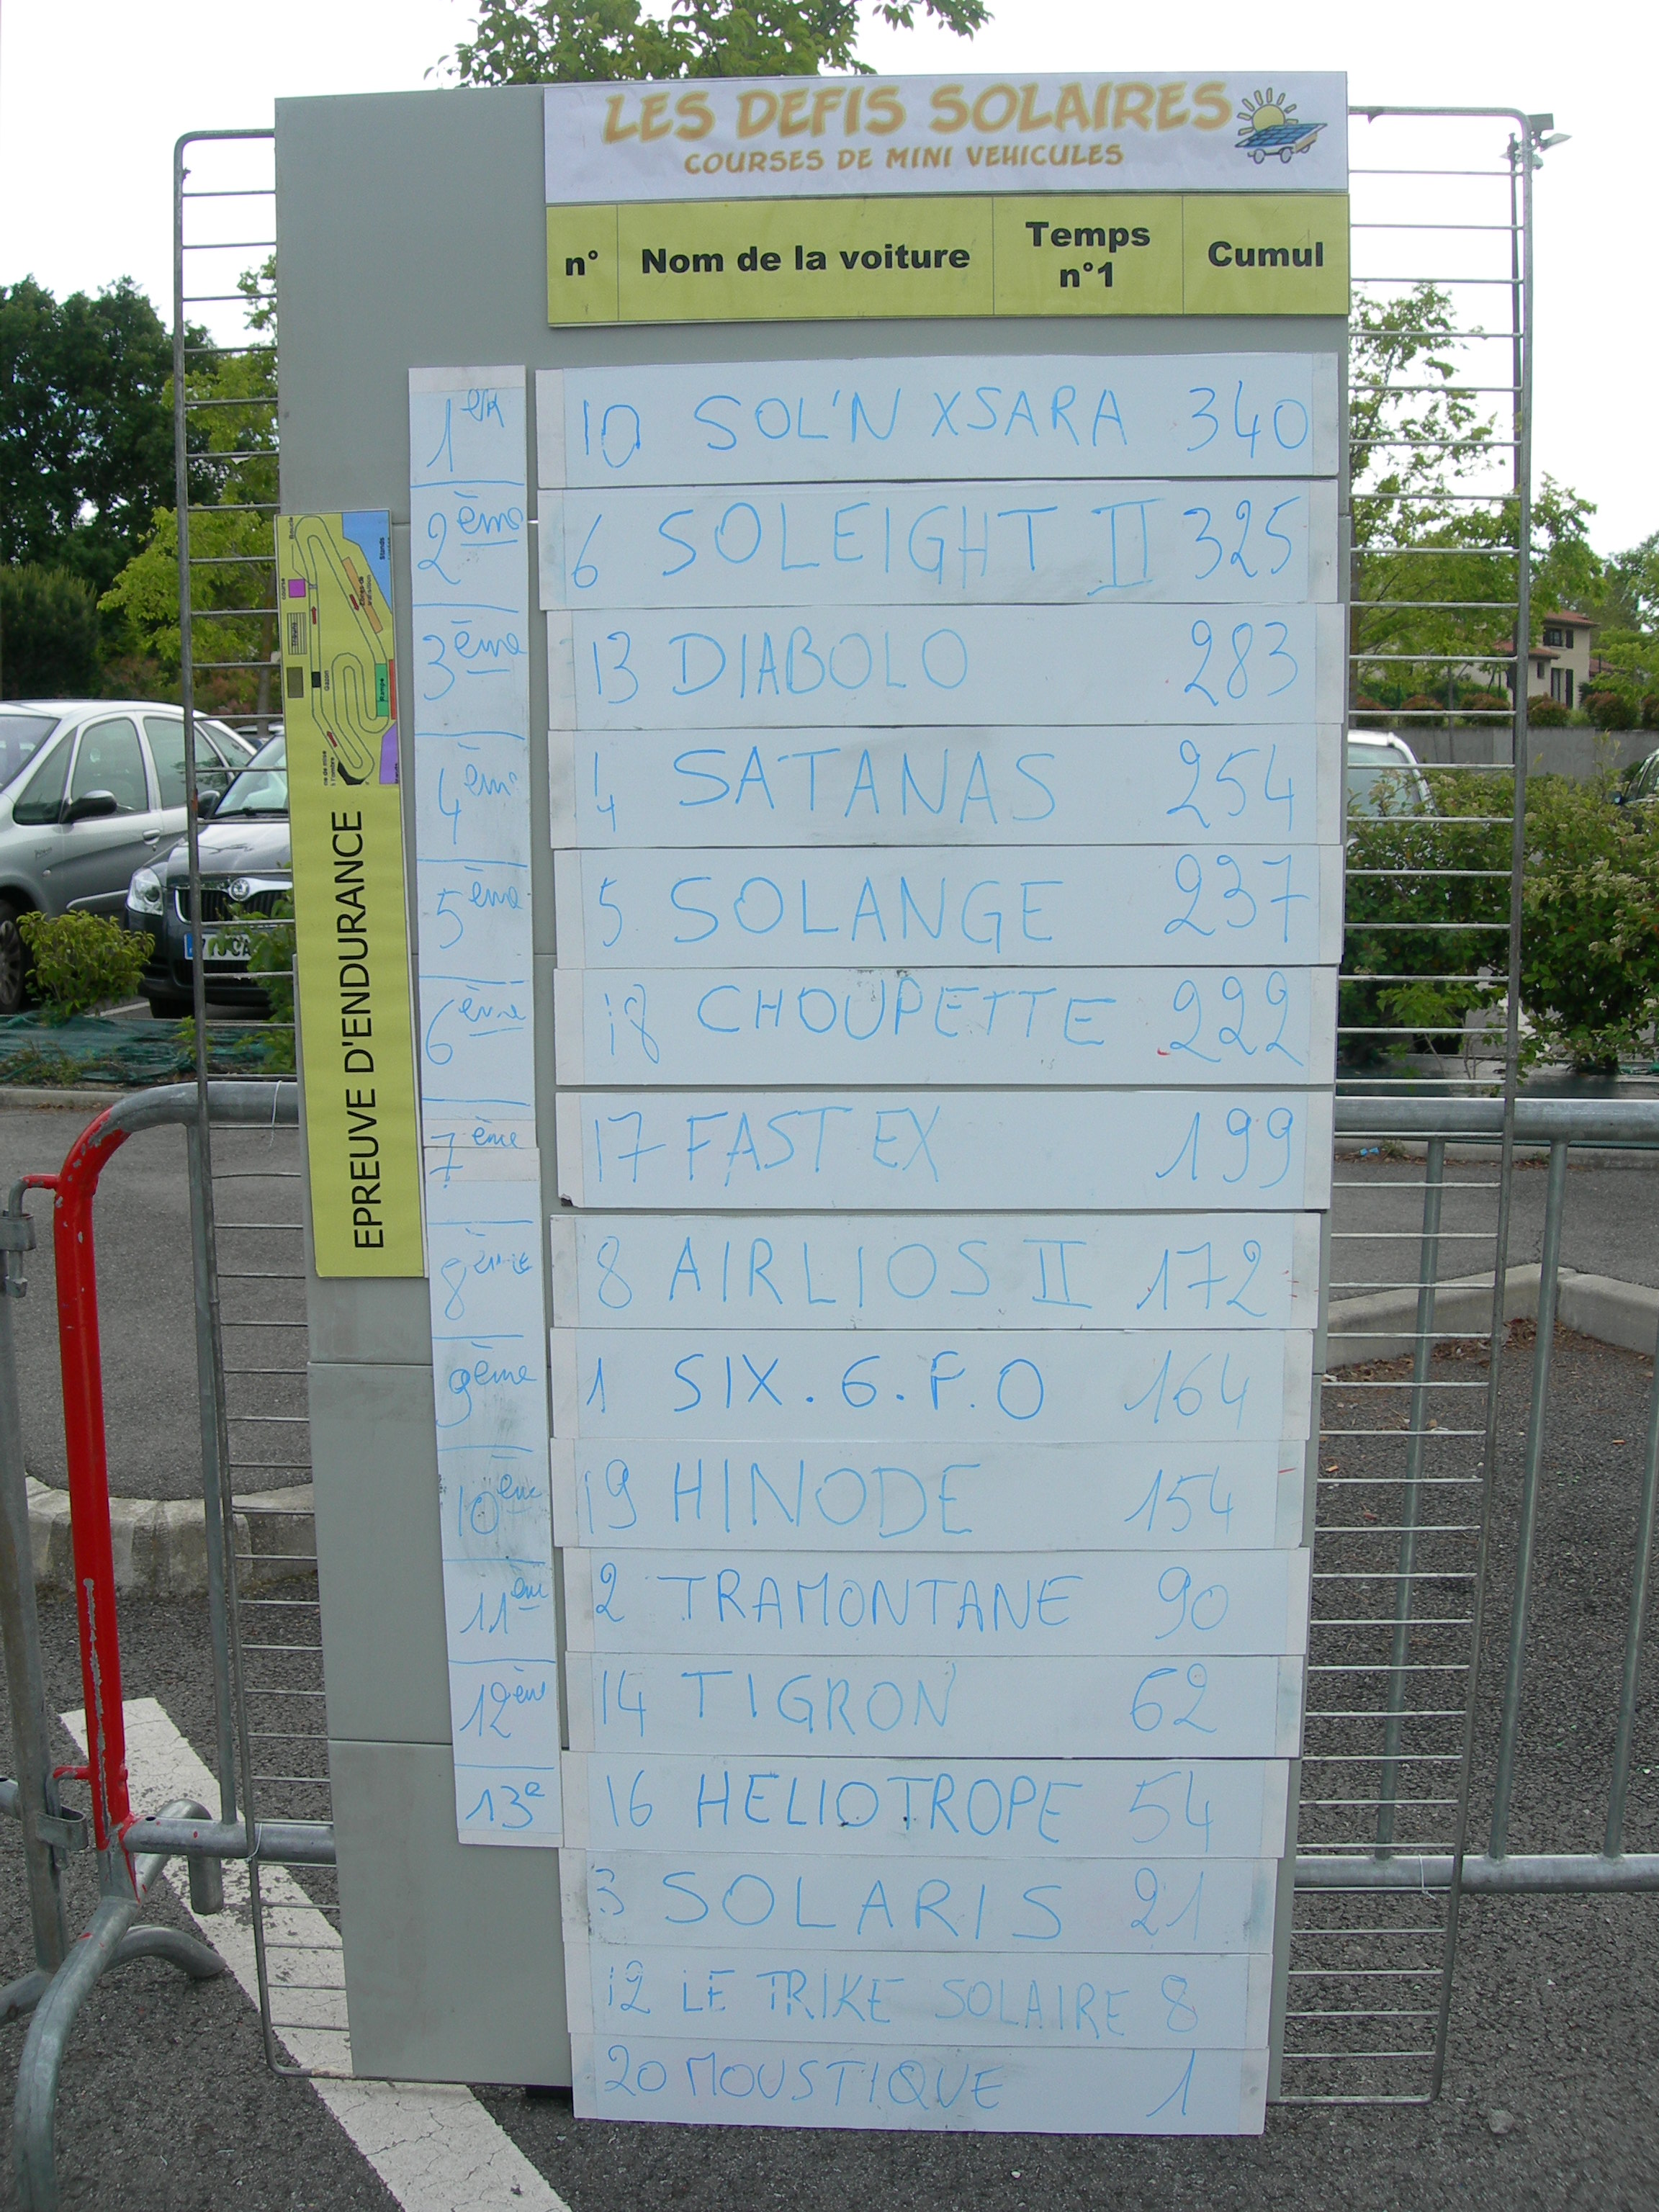 LES DEFIS SOLAIRES
COURSES DE MINI VEHICULES
n° Nom de la voiture Temps n°1 Cumul
1er 10 SOL'N XSARA 340
2ème 6 SOLEIGHT II 325
3ème 13 DIABOLO 283
4ème 4 SATANAS 254
5ème 5 SOLANGE 237
6ème 18 CHOUPETTE 222
7ème 17 FAST EX 199
8ème 8 AIRLIOS II 172
9ème 1 SIX.6.F.O 164
10ème 19 HINODE 154
11ème 2 TRAMONTANE 90
12ème 14 TIGRON 62
13e 16 HELIOTROPE 54
3 SOLARIS 21
12 LE TRIKE SOLAIRE 8
20 MOUSTIQUE 1
EPREUVE D'ENDURANCE
Boucle
Stands
Gazon
Rampe